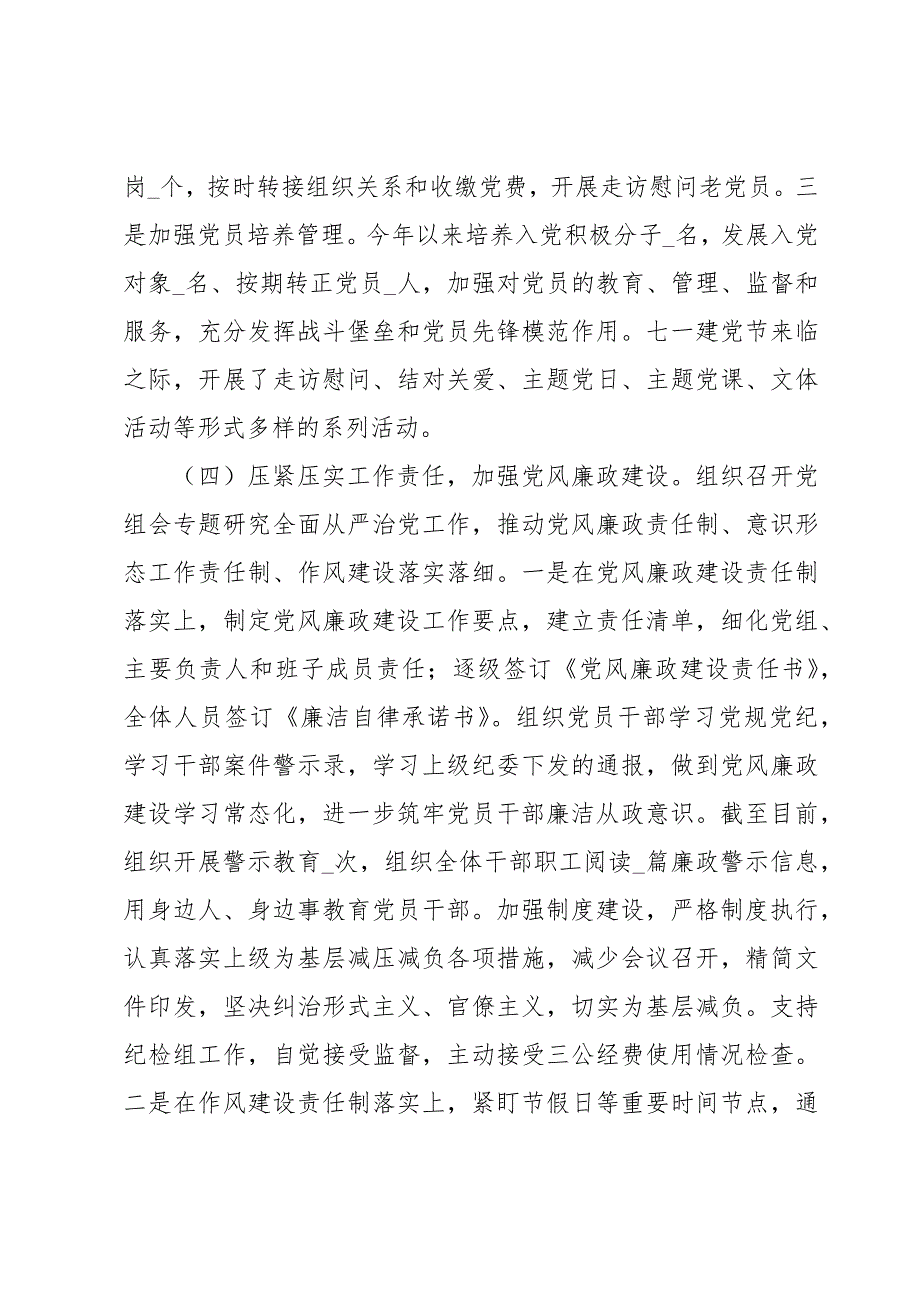 岗_个，按时转接组织关系和收缴党费，开展走访慰问老党员。三
是加强党员培养管理。今年以来培养入党积极分子_名，发展入党
对象_名、按期转正党员_人，加强对党员的教育、管理、监督和
服务，充分发挥战斗堡垒和党员先锋模范作用。七一建党节来临
之际，开展了走访慰问、结对关爱、主题党日、主题党课、文体
活动等形式多样的系列活动。
（四）压紧压实工作责任，加强党风廉政建设。组织召开党
组会专题研究全面从严治党工作，推动党风廉政责任制、意识形
态工作责任制、作风建设落实落细。一是在党风廉政建设责任制
落实上，制定党风廉政建设工作要点，建立责任清单，细化党组、
主要负责人和班子成员责任；逐级签订《党风廉政建设责任书》，
全体人员签订《廉洁自律承诺书》。组织党员干部学习党规党纪，
学习干部案件警示录，学习上级纪委下发的通报，做到党风廉政
建设学习常态化，进一步筑牢党员干部廉洁从政意识。截至目前，
组织开展警示教育_次，组织全体干部职工阅读_篇廉政警示信息，
用身边人、身边事教育党员干部。加强制度建设，严格制度执行，
认真落实上级为基层减压减负各项措施，减少会议召开，精简文
件印发，坚决纠治形式主义、官僚主义，切实为基层减负。支持
纪检组工作，自觉接受监督，主动接受三公经费使用情况检查。
二是在作风建设责任制落实上，紧盯节假日等重要时间节点，通